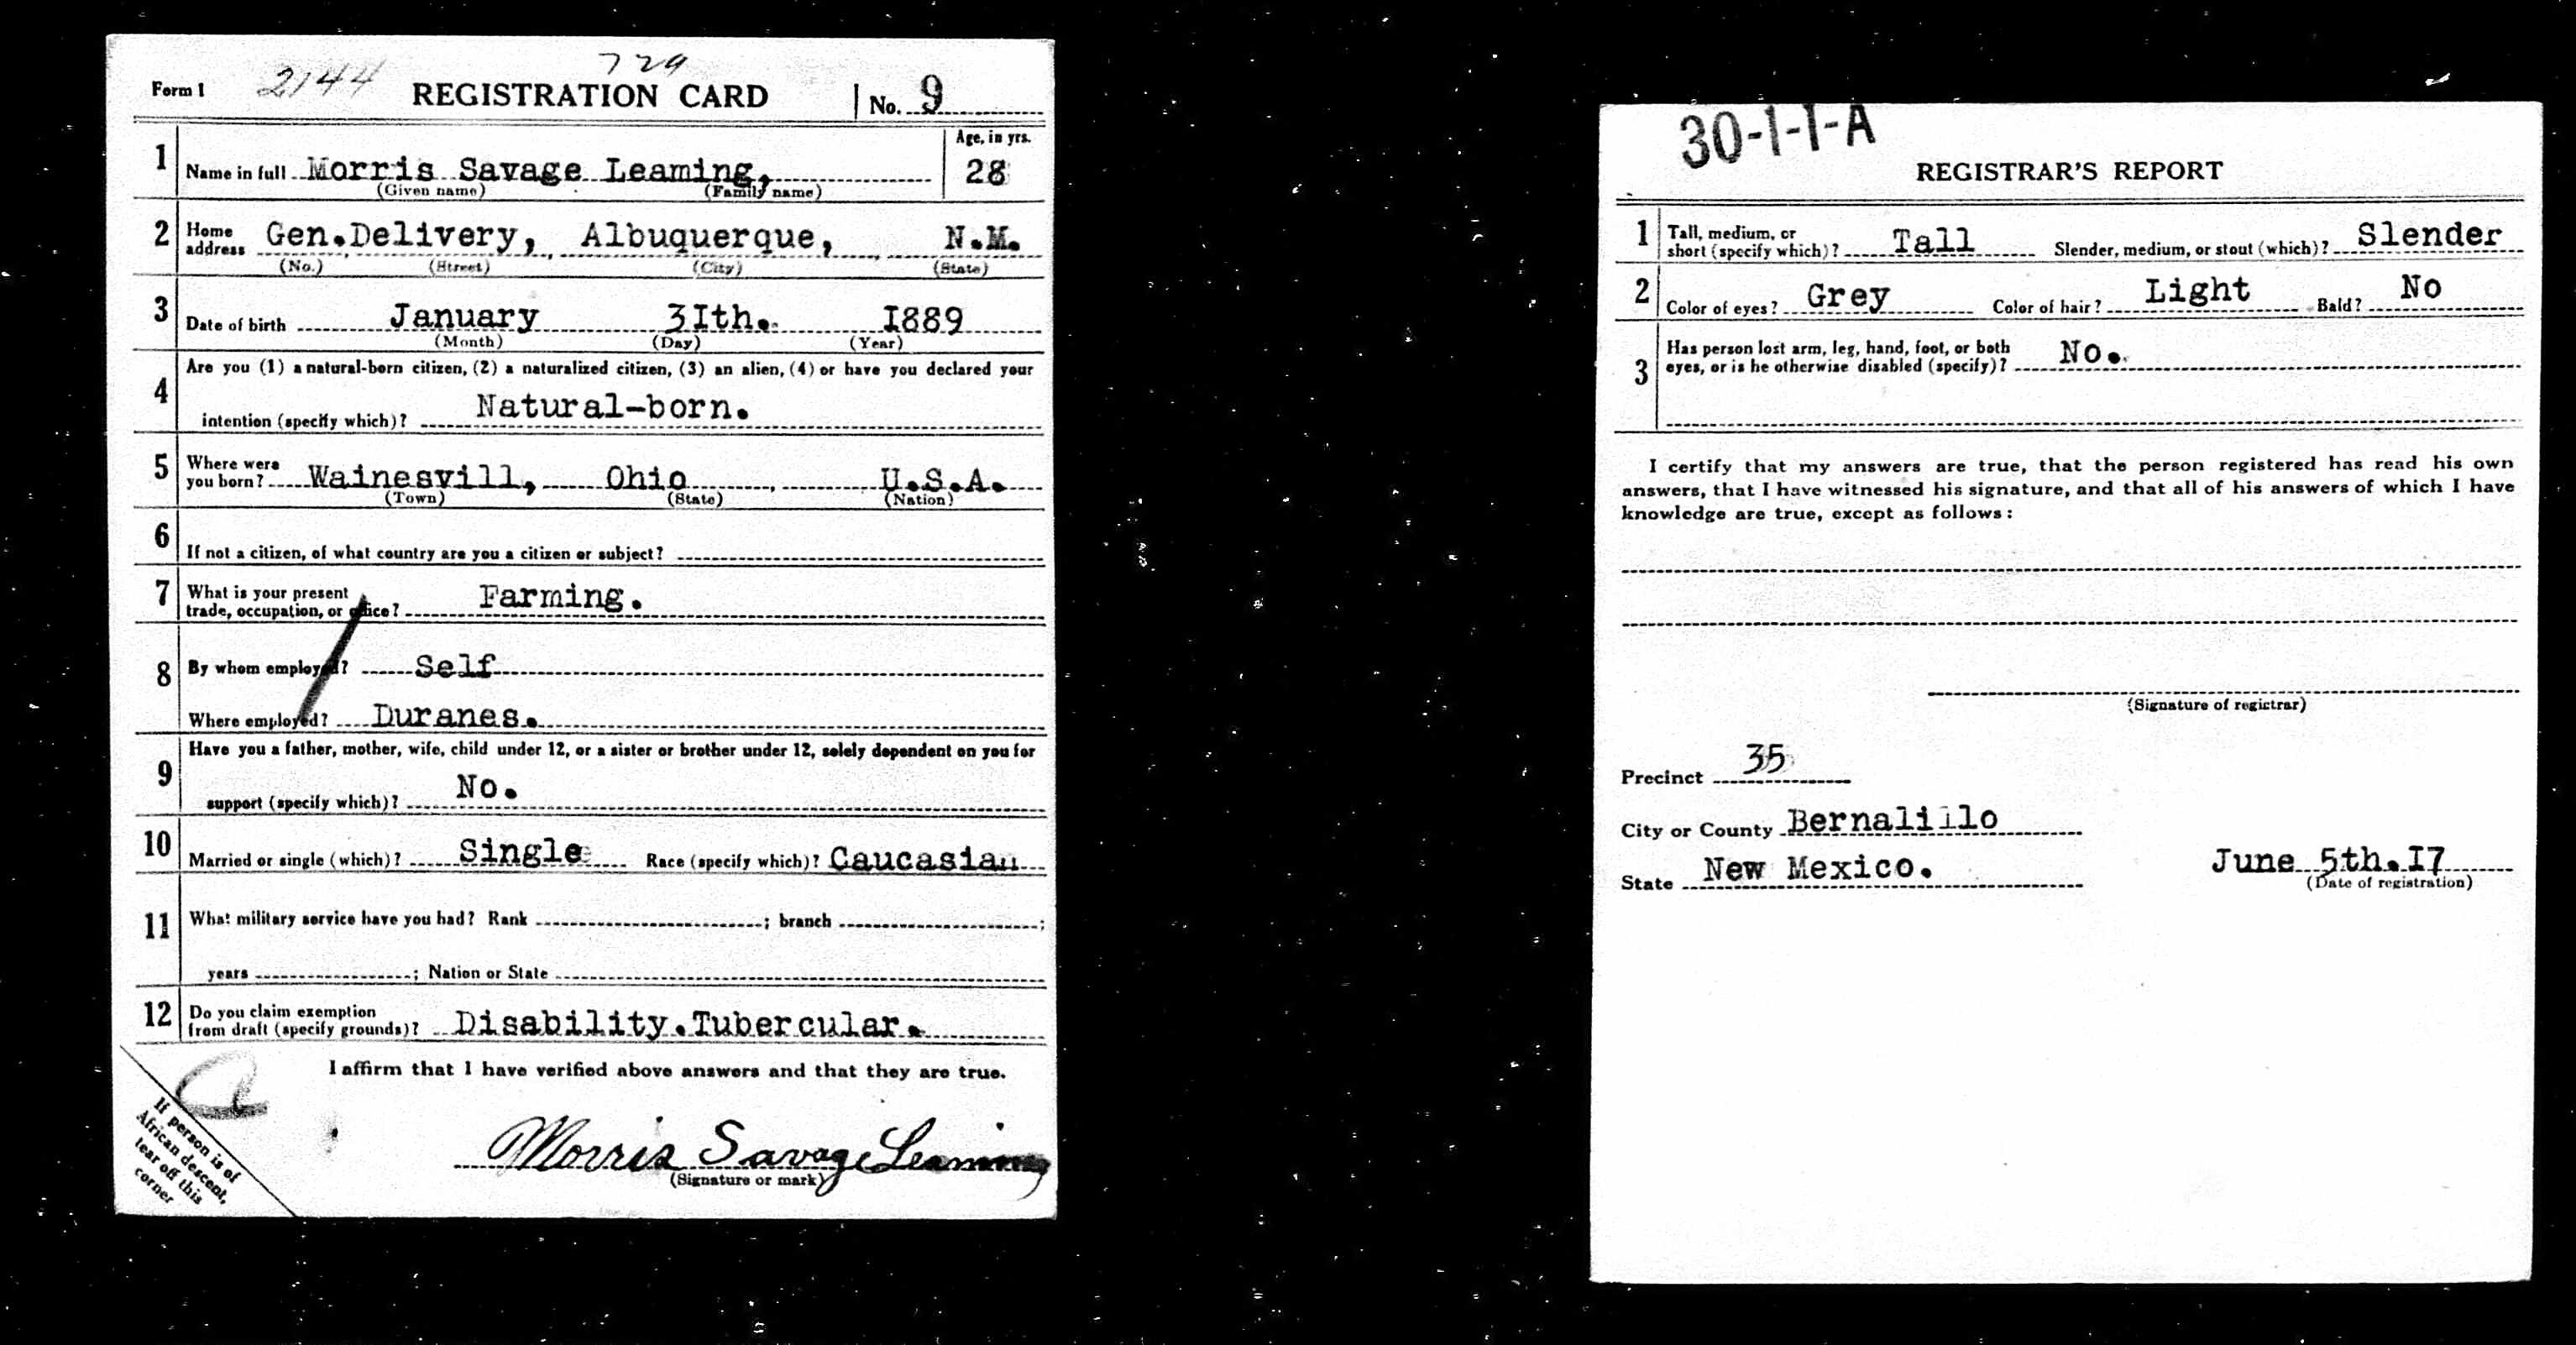 729
Form 1 2144 REGISTRATION CARD No. 9
1 Name in full Morris Savage Leaming, Age, in yrs. 28
(Given name) (Family name)
2 Home address Gen.Delivery, Albuquerque, N.M.
(No.) (Street) (City) (State)
3 Date of birth January 3Ith. I889
(Month) (Day) (Year)
4 Are you (1) a natural-born citizen, (2) a naturalized citizen, (3) an alien, (4) or have you declared your
intention (specify which)? Natural-born.
5 Where were you born? Wainesvill, Ohio U.S.A.
(Town) (State) (Nation)
6 If not a citizen, of what country are you a citizen or subject?
7 What is your present
trade, occupation, or office? Farming.
8 By whom employed? Self
Where employed? Duranes.
9 Have you a father, mother, wife, child under 12, or a sister or brother under 12, solely dependent on you for
support (specify which)? No.
10 Married or single (which)? Single Race (specify which)? Caucasian
11 What military service have you had? Rank ; branch ;
years ; Nation or State
12 Do you claim exemption
from draft (specify grounds)? Disability.Tubercular.
I affirm that I have verified above answers and that they are true.
If person is of
African descent,
tear off this
corner
Morris Savage Leaming
(Signature or mark)
30-1-1-A
REGISTRAR'S REPORT
1 Tall, medium, or
short (specify which)? Tall Slender, medium, or stout (which)? Slender
2 Color of eyes? Grey Color of hair? Light Bald? No
3 Has person lost arm, leg, hand, foot, or both
eyes, or is he otherwise disabled (specify)? No.
I certify that my answers are true, that the person registered has read his own
answers, that I have witnessed his signature, and that all of his answers of which I have
knowledge are true, except as follows:
(Signature of registrar)
Precinct 35
City or County Bernalillo
State New Mexico. June 5th.I7
(Date of registration)